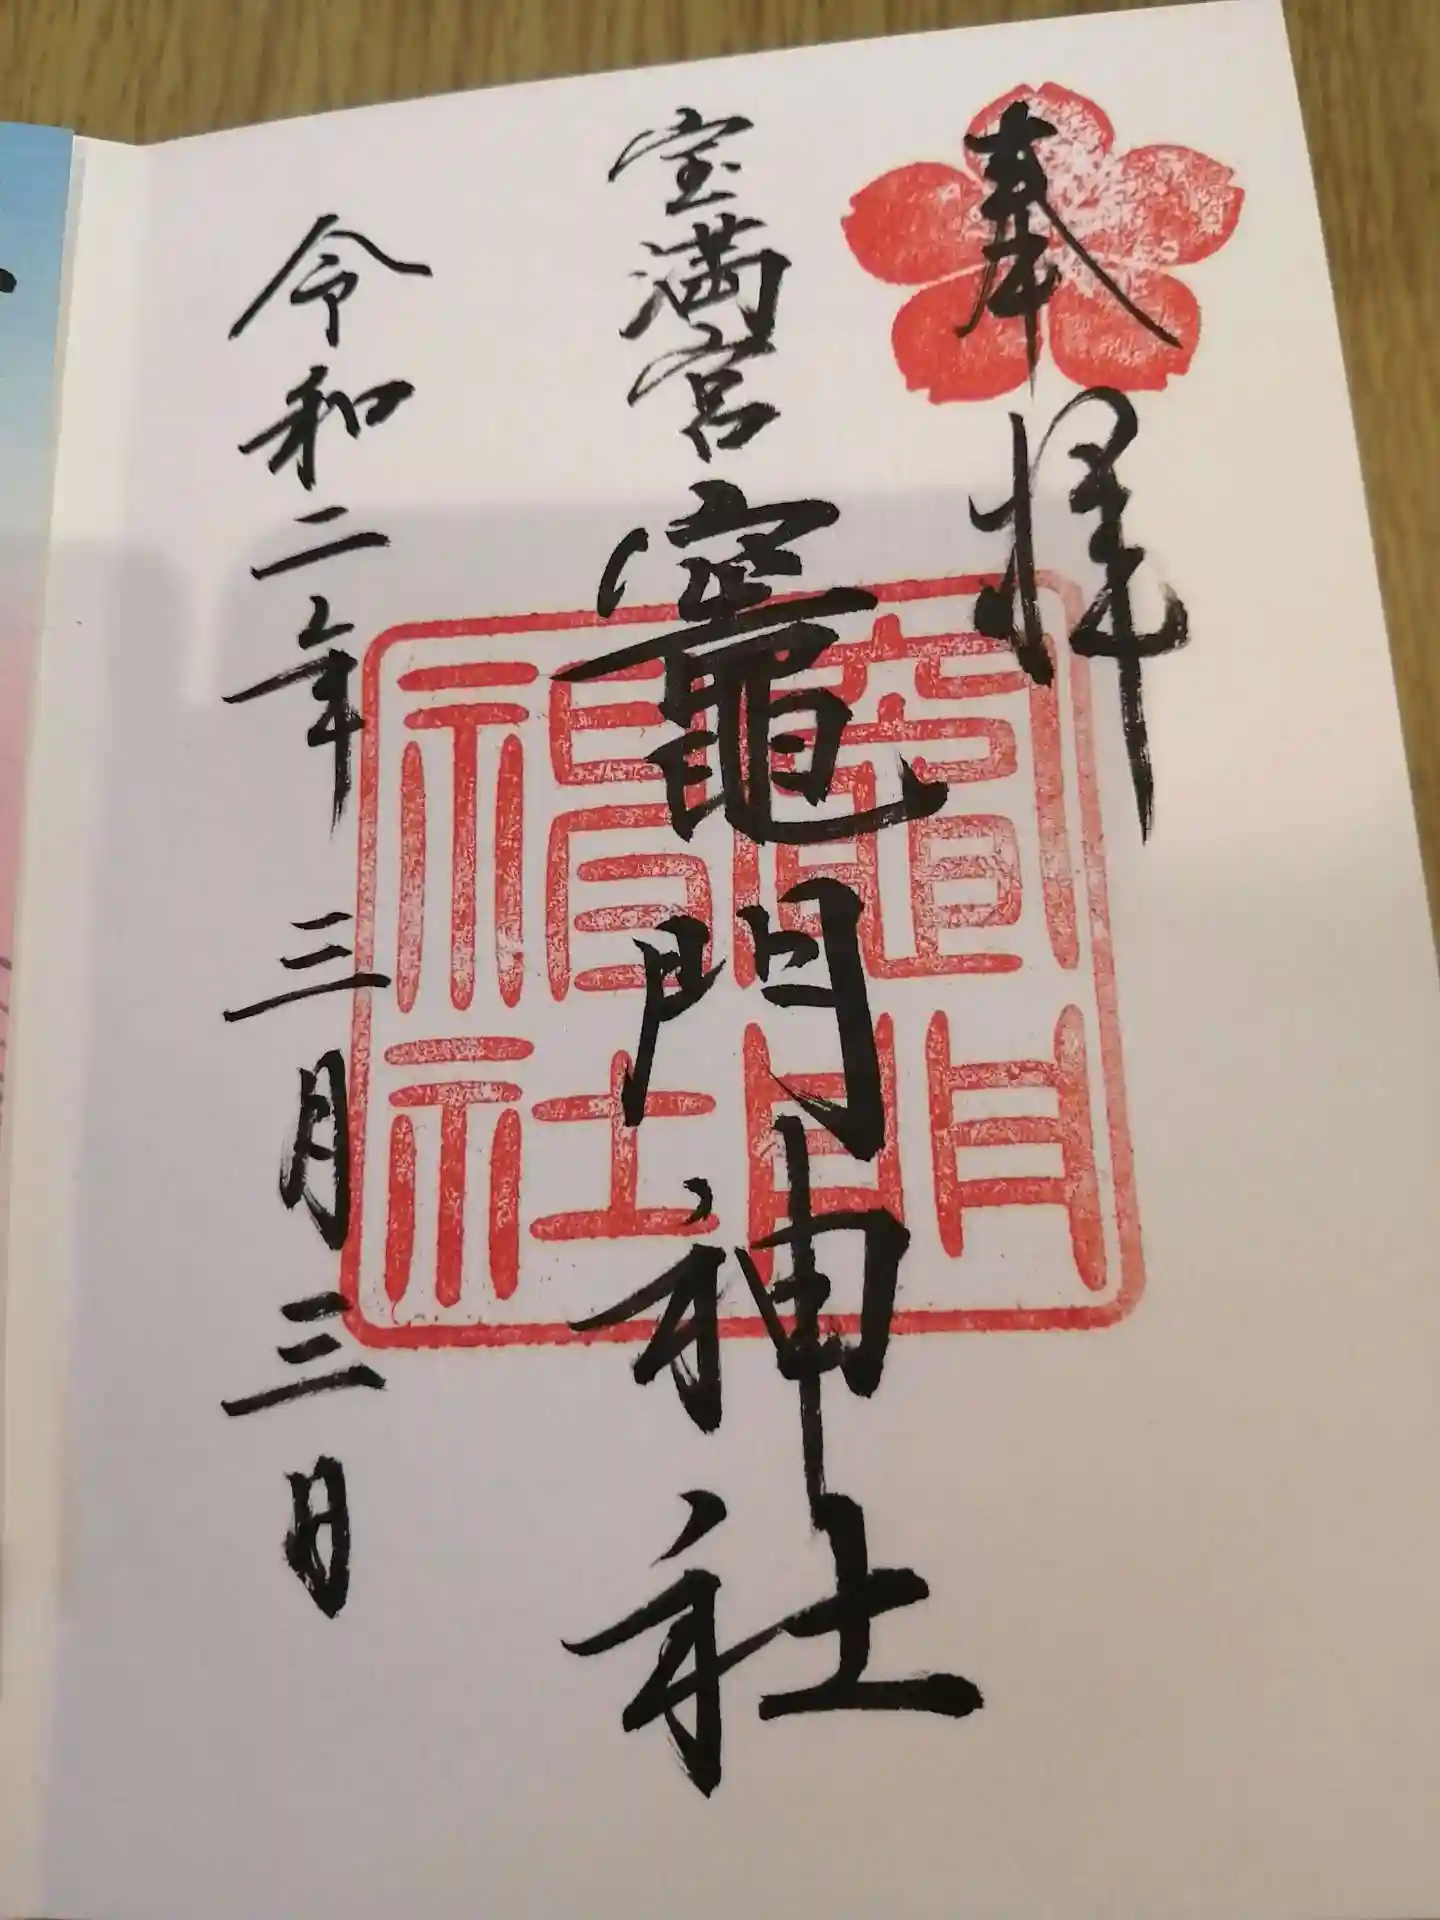 奉拝
宝満宮 竈門神社
竈門神社
令和二年 三月三日